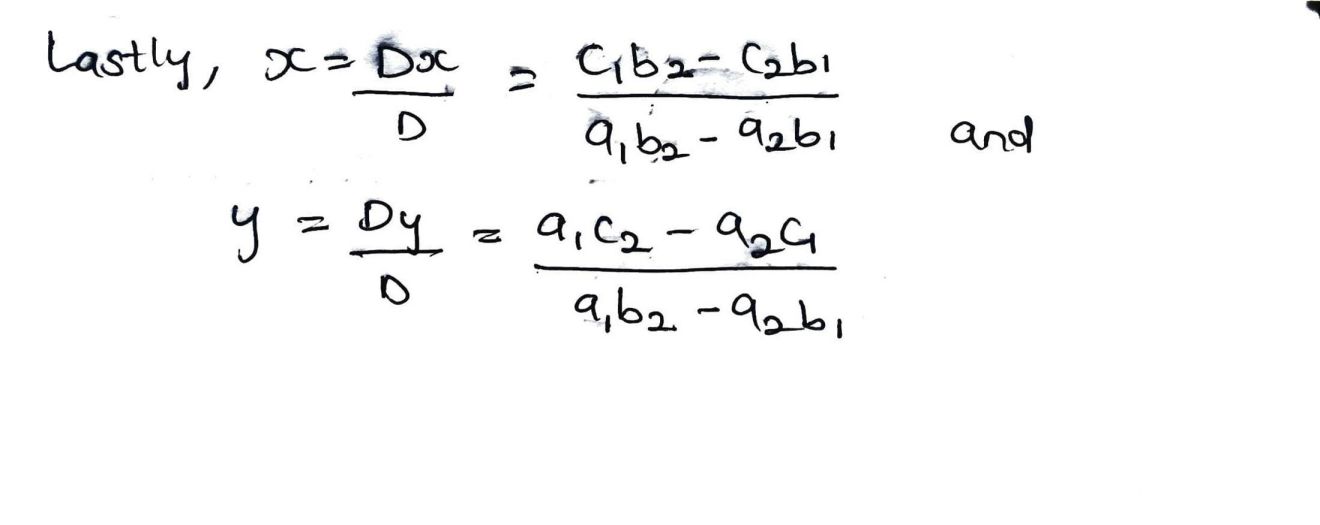 Lastly, x = Dx/D = (c₁b₂ - c₂b₁)/(a₁b₂ - a₂b₁) and
y = Dy/D = (a₁c₂ - a₂c₁)/(a₁b₂ - a₂b₁)